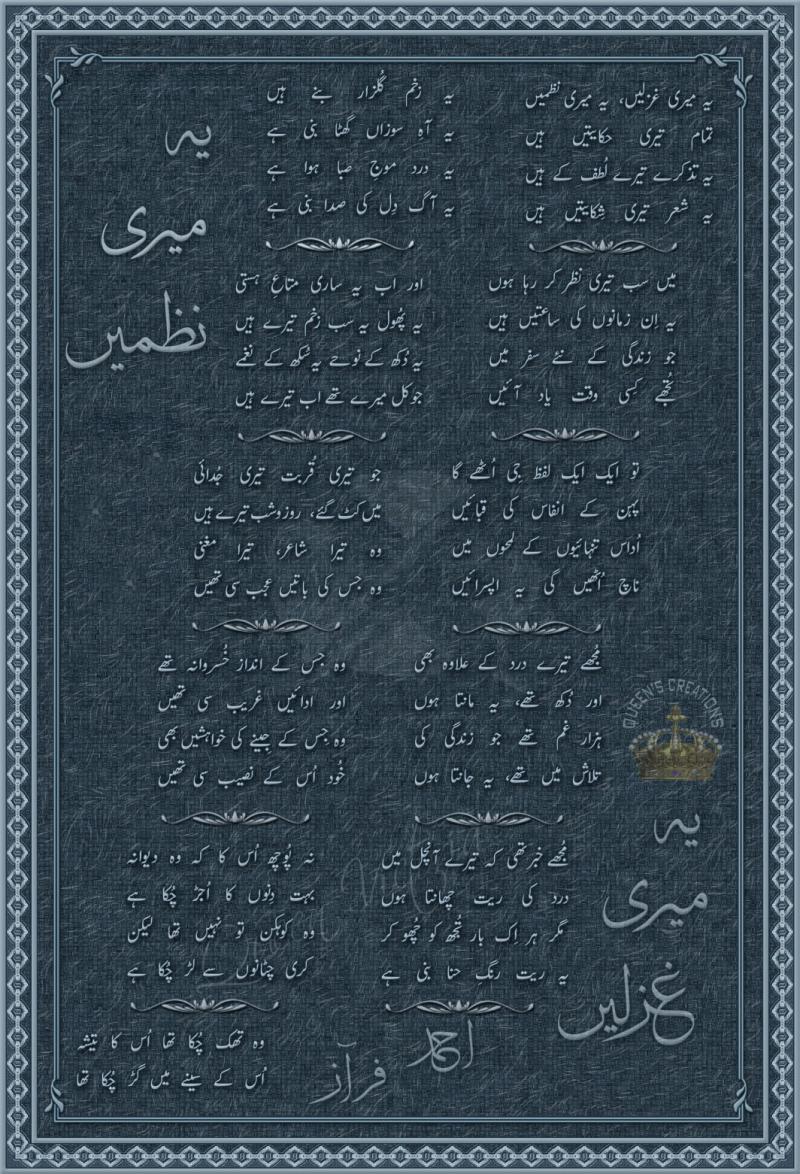 یہ
میری
نظمیں
یہ میری غزلیں، یہ میری نظمیں
تمام تیری حکایتیں ہیں
یہ تذکرے تیرے لُطف کے ہیں
یہ شعر تیری شِکایتیں ہیں
میں سب تیری نظر کر رہا ہوں
یہ اِن زمانوں کی ساعتیں ہیں
جو زندگی کے نئے سفر میں
تُجھے کِسی وقت یاد آئیں
تو ایک ایک لفظ جی اُٹھے گا
پہن کے انفاس کی قبائیں
اُداس تنہائیوں کے لمحوں میں
ناچ اُٹھیں گی یہ اپسرائیں
مُجھے تیرے درد کے علاوہ بھی
اور دُکھ تھے، یہ مانتا ہوں
ہزار غم تھے جو زندگی کی
تلاش میں تھے، یہ جانتا ہوں
مُجھے خبر تھی کہ تیرے آنچل میں
درد کی ریت چھانتا ہوں
مگر ہر اِک بار تُجھ کو چُھو کر
یہ ریت رنگِ حنا بنی ہے
یہ زخم گُلزار بنے ہیں
یہ آہِ سوزاں گھٹا بنی ہے
یہ درد موجِ صبا ہوا ہے
یہ آگ دِل کی صدا بنی ہے
اور اب یہ ساری متاعِ ہستی
یہ پُھول یہ سب زخم تیرے ہیں
یہ دُکھ کے نوحے یہ سُکھ کے نغمے
جو کل میرے تھے اب تیرے ہیں
جو تیری قُربت تیری جُدائی
میں کٹ گئے، روز و شب تیرے ہیں
وہ تیرا شاعر، تیرا مغنی
وہ جس کی باتیں عجب سی تھیں
وہ جس کے انداز خُسروانہ تھے
اور ادائیں غریب سی تھیں
وہ جس کے جینے کی خواہشیں بھی
خُود اُس کے نصیب سی تھیں
نہ پُوچھ اُس کا کہ وہ دیوانہ
بہت دِنوں کا اُجڑ چُکا ہے
وہ کوہکن تو نہیں تھا لیکن
کڑی چٹانوں سے لڑ چُکا ہے
وہ تھک چُکا تھا اُس کا تیشہ
اُس کے سینے میں گڑ چُکا تھا
QUEEN'S CREATIONS
یہ
میری
غزلیں
احمد
فراز